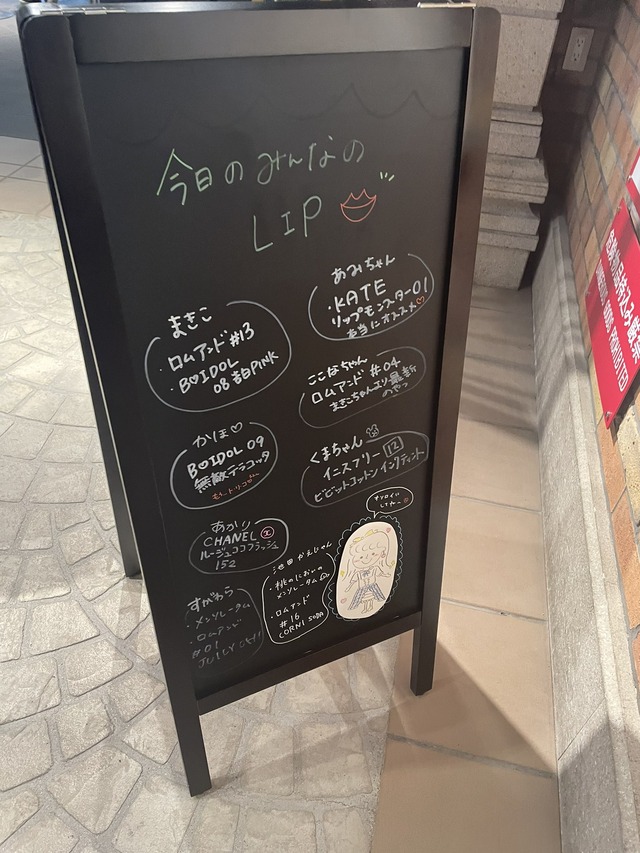 今日のみんなの
LIP
まきこ
・ロムアンド #13
・B♡IDOL
08 告白PINK
あみちゃん
・KATE
リップモンスター01
本当にオススメ♡
ここなちゃん
ロムアンド #04
まきこちゃんより最新
のやつ
かほ♡
B♡IDOL 09
無敵テラコッタ
くまちゃん
イニスフリー 12
ビビットコットンインクティント
あかり
CHANEL
ルージュココフラッシュ
152
池田かえじゃん
・桃のにおいの
メンソレータム
・ロムアンド
#16
CORNI SODA
すがわら
・メンソレータム
・ロムアンド
#01
危険物品持込み厳禁
DANGEROUS GOODS PROHIBITED